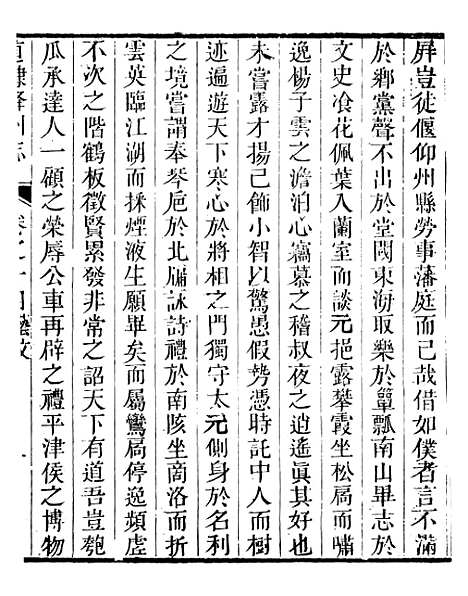 屏豈徒偃仰州縣勞事藩庭而已哉借如僕者言不滿
於鄉黨聲不出於堂閾東海取樂於簞瓢南山畢志於
文史飡花佩葉入蘭室而談元挹露攀霞坐松扄而嘯
逸楊子雲之澹泊心竊慕之稽叔夜之逍遙眞其好也
未嘗露才揚己飾小智以驚愚假勢憑時託中人而樹
迹遍遊天下寒心於將相之門獨守太元側身於名利
之境嘗謂奉琴巵於北牖詠詩禮於南陔坐商洛而折
雲英臨江湖而採煙液生願畢矣而屬鸞扄停逸頻虛
不次之階鶴板徵賢累發非常之詔天下有道吾豈匏
瓜承達人一顧之榮辱公車再辟之禮平津侯之博物
直隸絳州志
卷之十四藝文